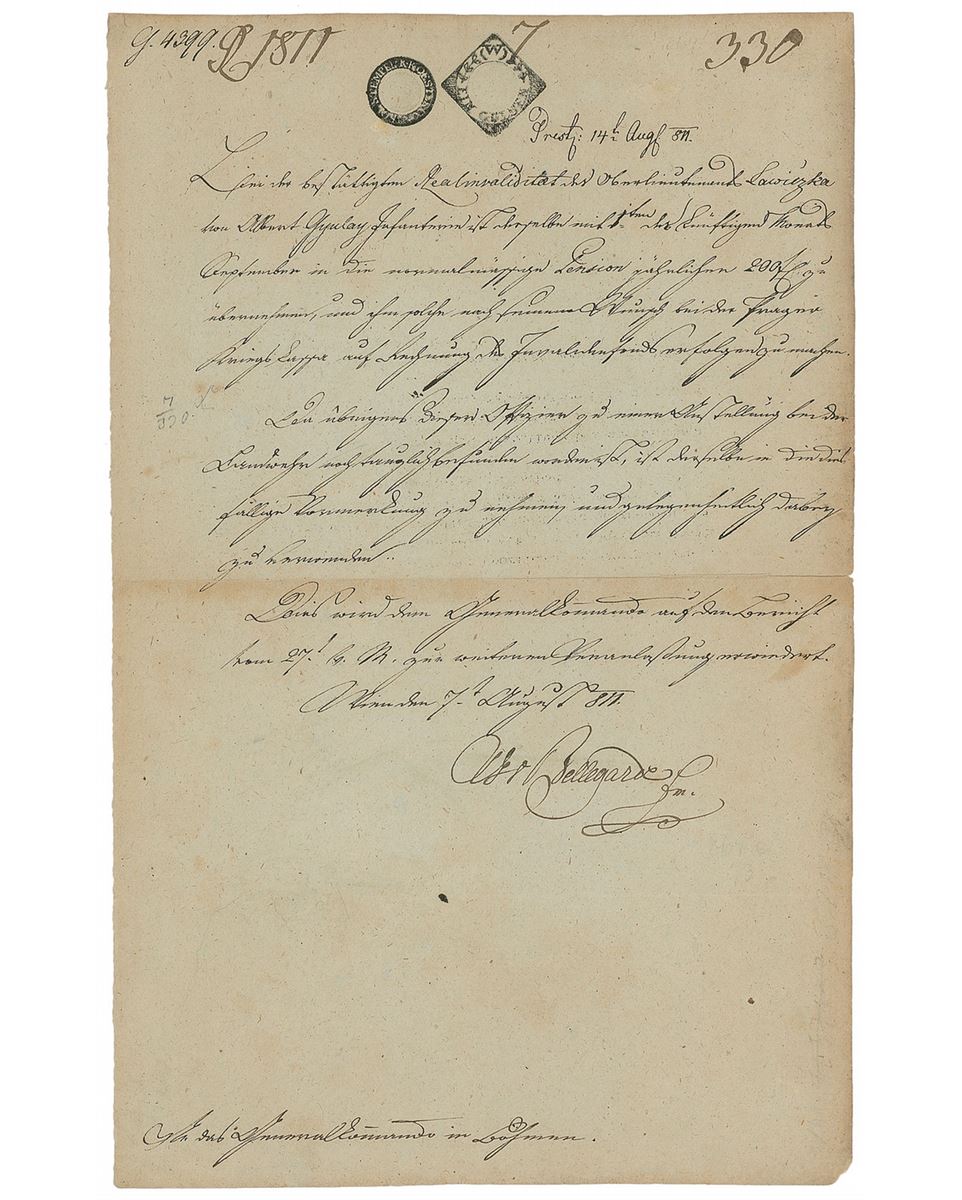 G. 4399. P 1811 7 330
STEMPEL K. K. OESTERR
Prest: 14t. Aug 811.
Bei der bestättigten Realinvalidität des Oberlieutenants Lawiczka
von Albert Gyulay Infanterie ist derselbe mit 1ten des künftigen Monats
September in die normalmässige Pension jährlicher 200 f. zu
übernehmen, und ihm solche nach seinem Wunsch bei der Prager
Kriegs Cassa auf Rechnung des Invalidenfonds erfolgen zu machen.
7
330.
Da übrigens dieser Offizier zu einer Anstellung bei der
Landwehr noch tauglich befunden worden ist, ist derselbe in die dies
fällige Vormerkung zu nehmen, und gelegenheitlich dabey
zu verwenden.
Dies wird dem Generalkommando auf den Bericht
vom 27t. v. M. zur weiteren Veranlassung erwiedert.
Wien den 7t. August 811.
Bellegarde
An das Generalkommando in Böhmen.